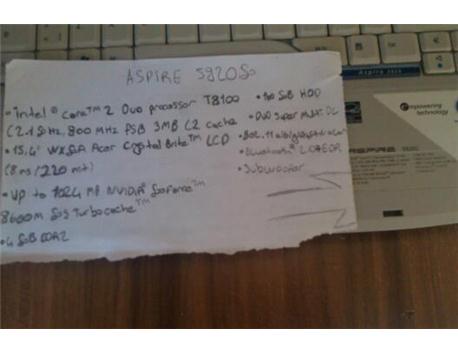 ASPIRE 5920G
• Intel® Core™ 2 Duo processor T8100
(2.1 GHz, 800 MHz FSB 3MB L2 Cache
• 15.4" WXGA Acer CrystalBrite™ LCD
(8 ms / 220 nit)
• Up to 1024 MB NVIDIA® GeForce™
8600M GS TurboCache™
• 4 GB DDR2
• 160 GB HDD
• DVD Super Multi DL
• 802.11
• Bluetooth® 2.0+EDR
• Subwoofer
Aspire 5920
empowering
technology
ASPIRE